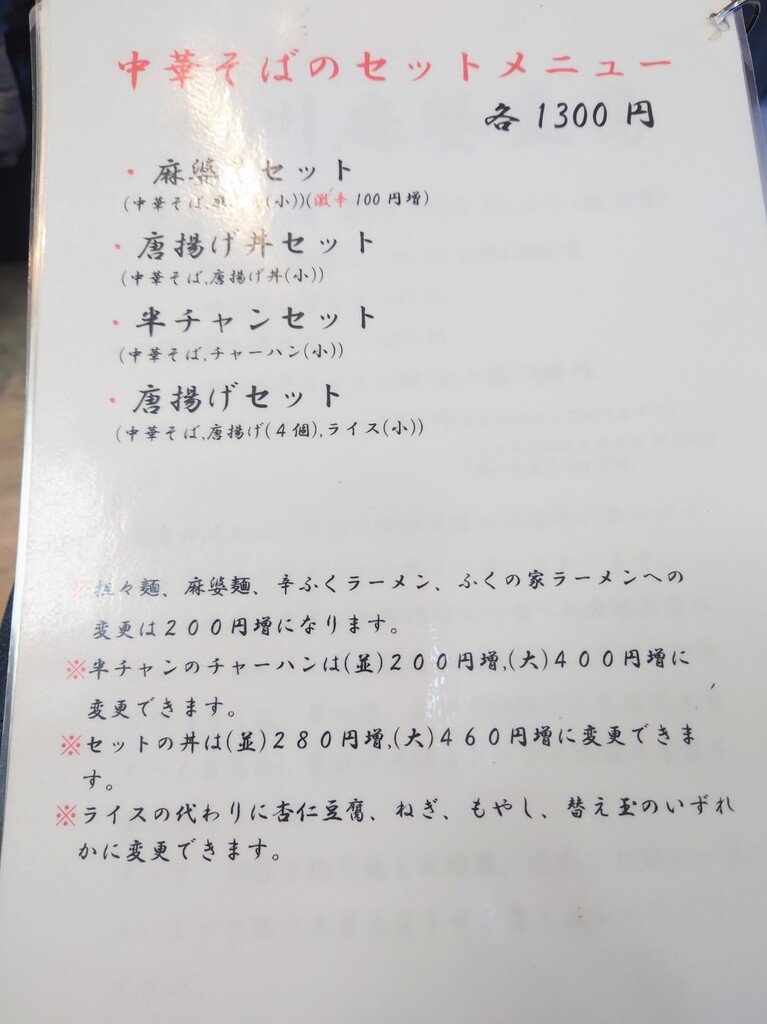 中華そばのセットメニュー
各1300円
・麻婆丼セット
(中華そば,(小))(激辛100円増)
・唐揚げ丼セット
(中華そば,唐揚げ丼(小))
・半チャンセット
(中華そば,チャーハン(小))
・唐揚げセット
(中華そば,唐揚げ(4個),ライス(小))
※担々麺、麻婆麺、辛ふくラーメン、ふくの家ラーメンへの
変更は200円増になります。
※半チャンのチャーハンは(並)200円増,(大)400円増に
変更できます。
※セットの丼は(並)280円増,(大)460円増に変更できま
す。
※ライスの代わりに杏仁豆腐、ねぎ、もやし、替え玉のいずれ
かに変更できます。